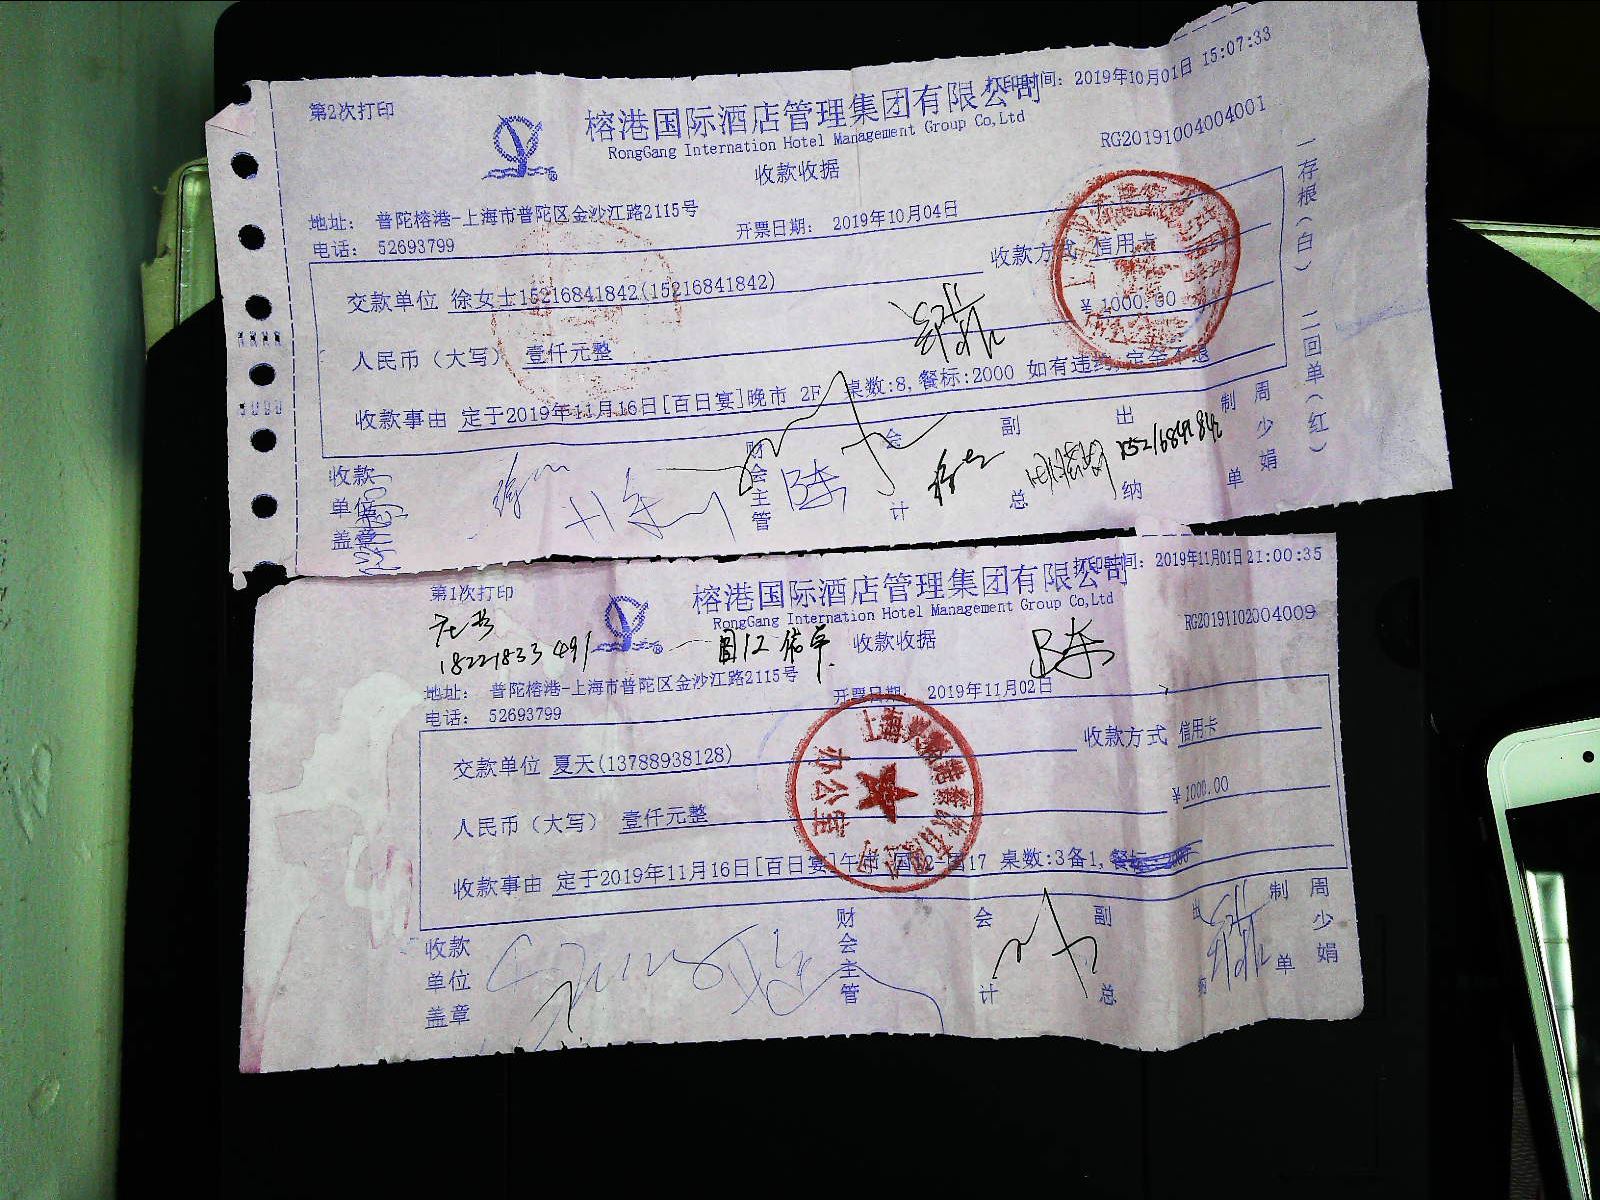 第2次打印
打印时间: 2019年10月01日 15:07:33
榕港国际酒店管理集团有限公司
RongGang Internation Hotel Management Group Co,Ltd
RG20191004004001
收款收据
地址: 普陀榕港-上海市普陀区金沙江路2115号
开票日期: 2019年10月04日
电话: 52693799
收款方式 信用卡
交款单位 徐女士15216841842(15216841842)
¥1000.00
人民币（大写） 壹仟元整
收款事由 定于2019年11月16日[百日宴]晚市 2F 桌数:8,餐标:2000 如有违约,定金不退
收款单位盖章
财会主管
会计
副总
出纳
制单
周少娟
15216841842
一存根(白) 二回单(红)
第1次打印
打印时间: 2019年11月01日21:00:35
榕港国际酒店管理集团有限公司
RongGang Internation Hotel Management Group Co,Ltd
RG20191102004009
收款收据
18221833491
地址: 普陀榕港-上海市普陀区金沙江路2115号
开票日期: 2019年11月02日
电话: 52693799
收款方式 信用卡
交款单位 夏天(13788938128)
¥1000.00
人民币（大写） 壹仟元整
收款事由 定于2019年11月16日[百日宴]午市 国12-国17 桌数:3备1,餐标:2000
办公室
收款单位盖章
财会主管
会计
副总
出纳
制单
周少娟